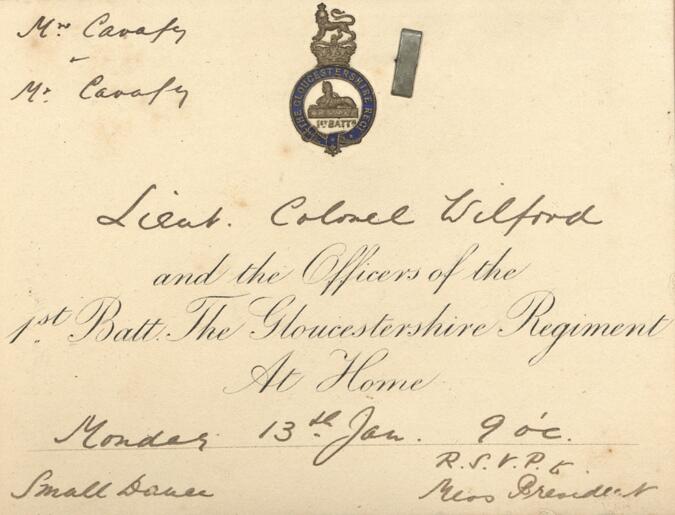 Mrs Cavafy
&
Mr Cavafy
THE GLOUCESTERSHIRE REGT
1ST BATTN
Lieut. Colonel Wilford
and the Officers of the
1st Batt. The Gloucestershire Regiment
At Home
Monday 13th Jan. 9 o'c.
R.S.V.P. to
Small Dance
Mess President